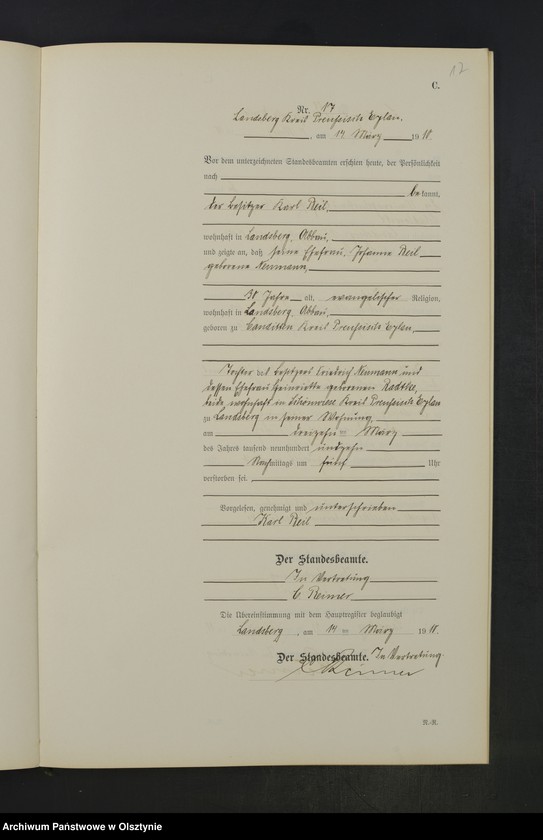 12
C.
Nr. 17
Landsberg Kreis Preußisch Eylau,
, am 14 März 1911.
Vor dem unterzeichneten Standesbeamten erschien heute, der Persönlichkeit
nach
bekannt,
der Besitzer Karl Reil,
wohnhaft in Landsberg, Abbau,
und zeigte an, daß seine Ehefrau, Johanne Reil
geborene Neumann,
Jahre alt, evangelischer Religion,
wohnhaft in Landsberg, Abbau,
geboren zu Canditten Kreis Preußisch Eylau,
Tochter des Besitzers Friedrich Neumann und
dessen Ehefrau Henriette geborenen Radtke,
beide wohnhaft in Schönwiese Kreis Preußisch Eylau
zu Landsberg in seiner Wohnung
am dreizehn ten März
des Jahres tausend neunhundert und
Nachmittags um fünf Uhr
verstorben sei.
Vorgelesen, genehmigt und unterschrieben
Karl Reil
Der Standesbeamte.
In Vertretung
C Reimer
Die Übereinstimmung mit dem Hauptregister beglaubigt
Landsberg, am 14 ten März 1911.
Der Standesbeamte. In Vertretung
C Reimer
R.-R.
Archiwum Państwowe w Olsztynie